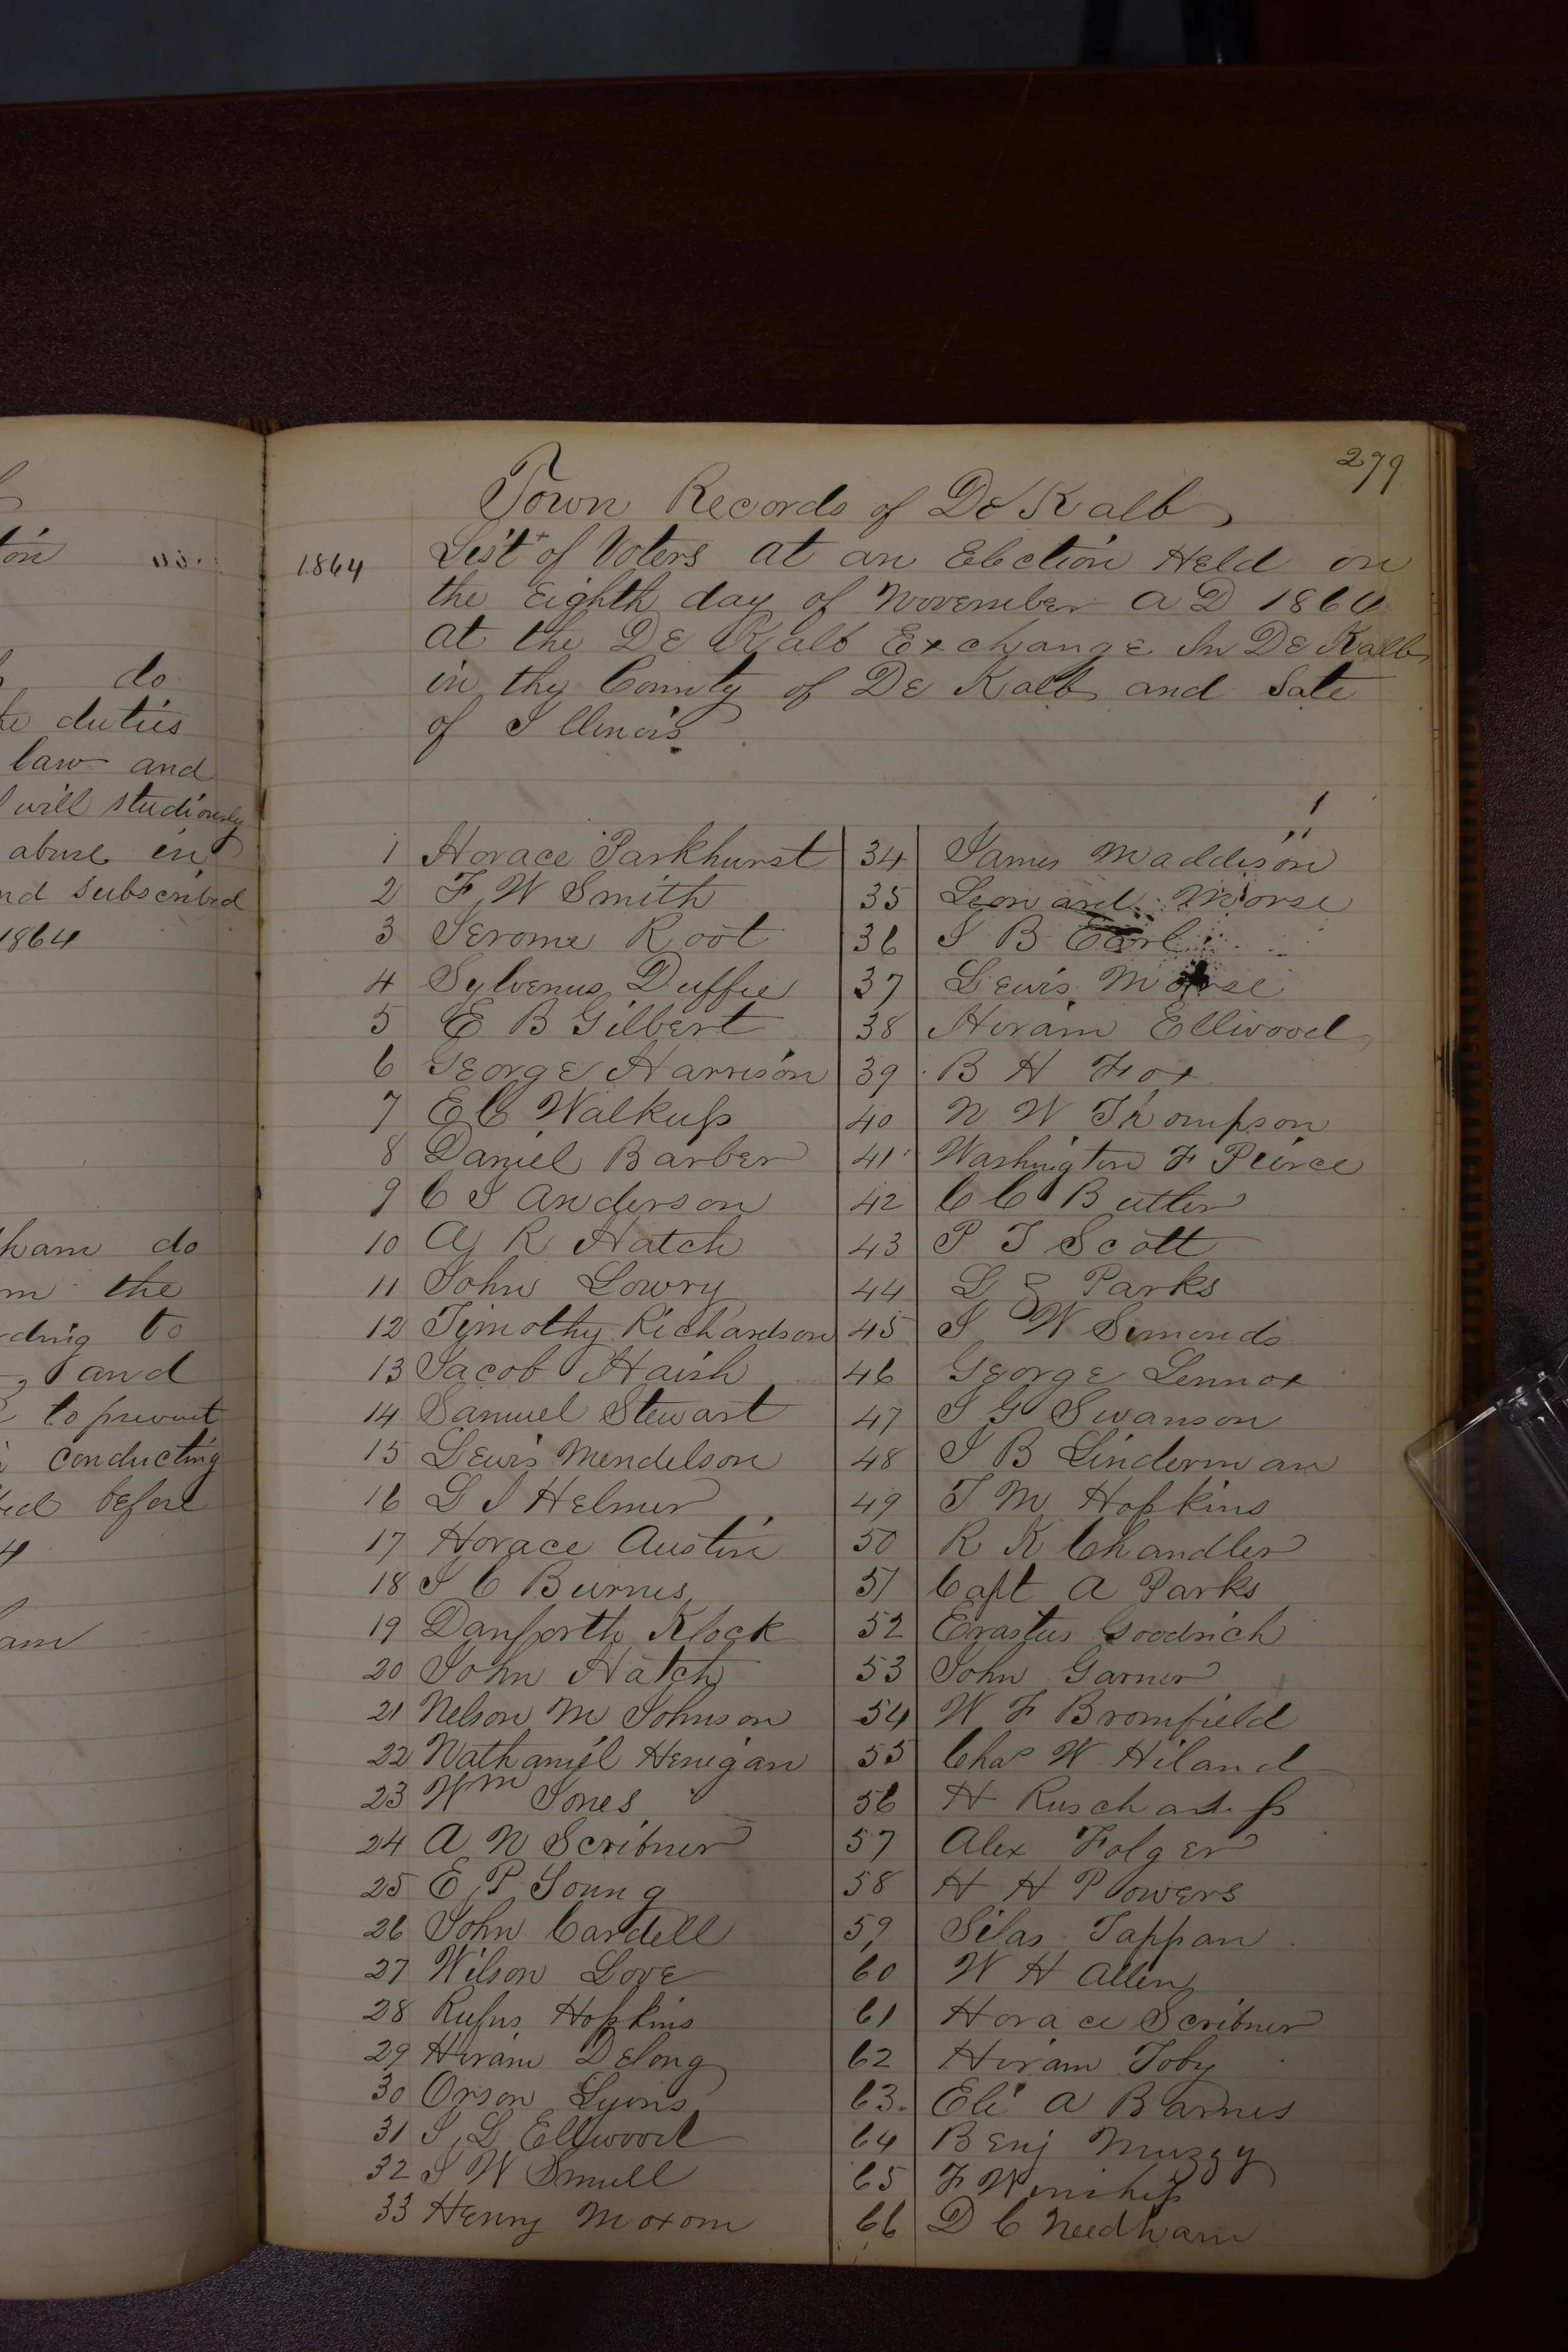 279
Town Records of De Kalb
1864 List of Voters at an Election Held on
the Eighth day of November A D 1864
at the De Kalb Exchange In De Kalb
in thy County of De Kalb and Sate
of Illinois
1 Horace Parkhurst 34 James Maddison
2 F W Smith 35 Leonard Morse
3 Jerome Root 36 I B Earl
4 Sylvenus Duffie 37 Lewis Morse
5 E B Gilbert 38 Hiram Ellwood
6 George Harrison 39 B H Fox
7 E C Walkup 40 N W Thompson
8 Daniel Barber 41 Washington F Peirce
9 C I Anderson 42 C C Butler
10 A R Hatch 43 P T Scott
11 John Lowry 44 L E Parks
12 Timothy Richardson 45 I W Simonds
13 Jacob Haish 46 George Lennox
14 Samuel Stewart 47 I G Swanson
15 Lewis Mendelson 48 I B Linderman
16 L I Helmer 49 T M Hopkins
17 Horace Austin 50 R K Chandler
18 I C Burnes 51 Capt A Parks
19 Danforth Klock 52 Erastus Goodrich
20 John Hatch 53 John Garner
21 Nelson M Johnson 54 W F Bromfield
22 Nathaniel Henigan 55 Chas W Hiland
23 Wm Jones 56 H
24 A N Scribner 57 Alex Folger
25 E P Young 58 H H Powers
26 John Cardell 59 Silas Tappan
27 Wilson Love 60 W H Allen
28 Rufus Hopkins 61 Horace Scribner
29 Hiram Delong 62 Hiram Toby
30 Orson Lyons 63 Eli A Barnes
31 I L Ellwood 64 Benj Muzzy
32 I W Smull 65 F Winship
33 Henry Moxom 66 D C Needham
do
duties
law and
will studiously
abuse in
nd subscribed
1864
ham do
m the
rding to
and
to prevent
conducting
before
4
am